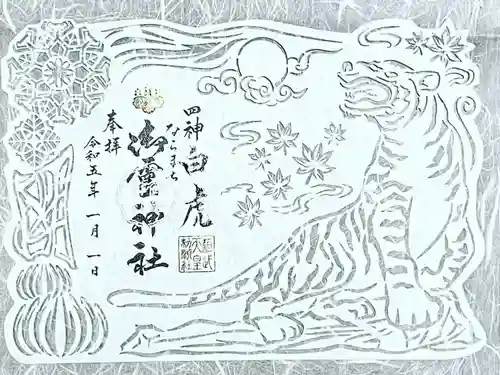 四神 白虎
ならまち
御霊神社
奉拝
令和五年 一月 一日